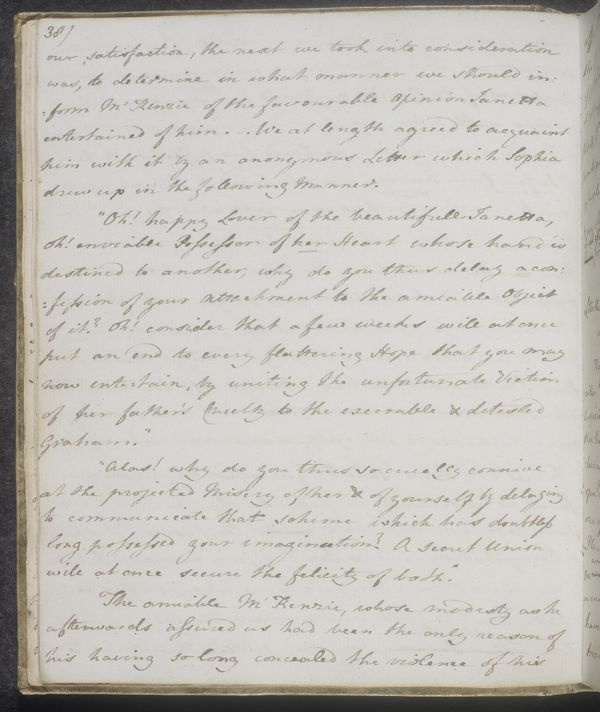 38)
our satisfaction, the next we took into consideration
was, to determine in what manner we should in:
:form Mʳ Kenzie of the favourable Opinion Janetta
entertained of him . . We at length agreed to acquaint
him with it by an anonymous Letter which Sophia
drew up in the following Manner.
"Oh! happy Lover of the beautifull Janetta,
Oh! enviable Possessor of her Heart whose hand is
destined to another, why do you thus delay a con:
:fession of your attachment to the amiable Object
of it? Oh! consider that a few weeks will at once
put an end to every flattering Hope that you may
now entertain, by uniting the unfortunate Victim
of her father's Cruelty to the execrable & detested
Graham."
"Alas! why do you thus so cruelly connive
at the projected Misery of her & of yourself by delaying
to communicate that scheme which has doubtless
long possessed your imagination? A secret Union
will at once secure the felicity of both."
The amiable Mʳ Kenzie, whose modesty as he
afterwards assured us had been the only reason of
his having so long concealed the violence of his